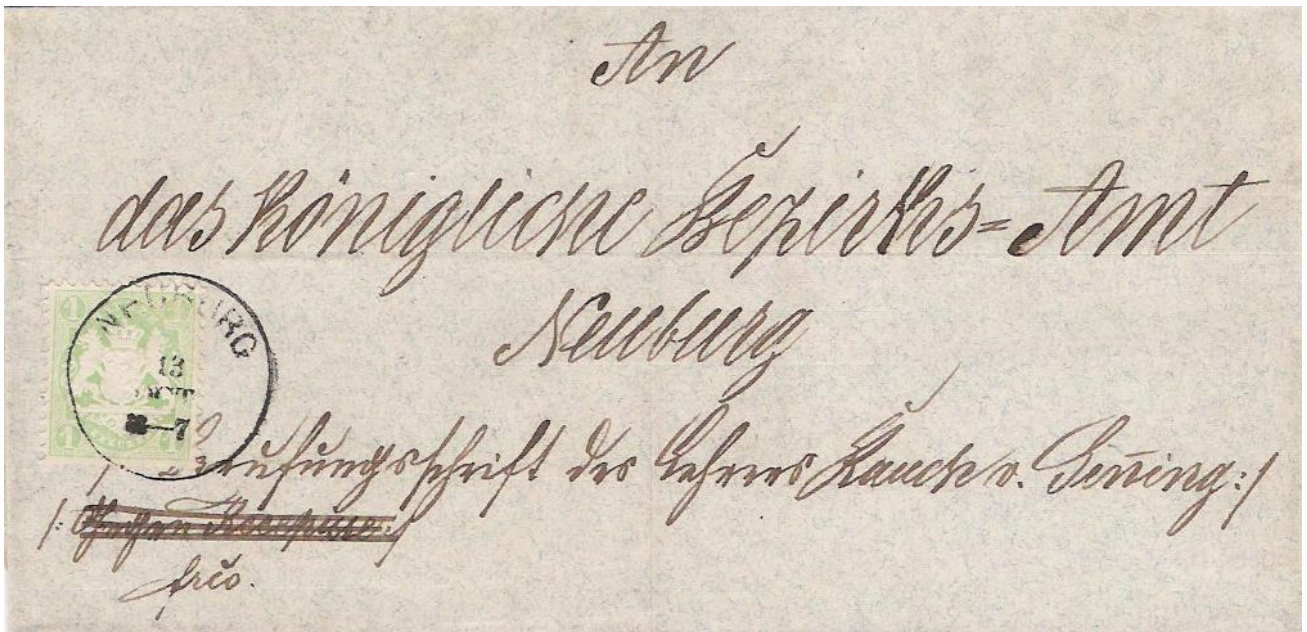 An
das königliche Bezirks=Amt
Neuburg
1 1
NEUBURG
13
OCT
7
1 1
Berufungsschrift des Lehrers v. :/
/: Gegen :/
frco.